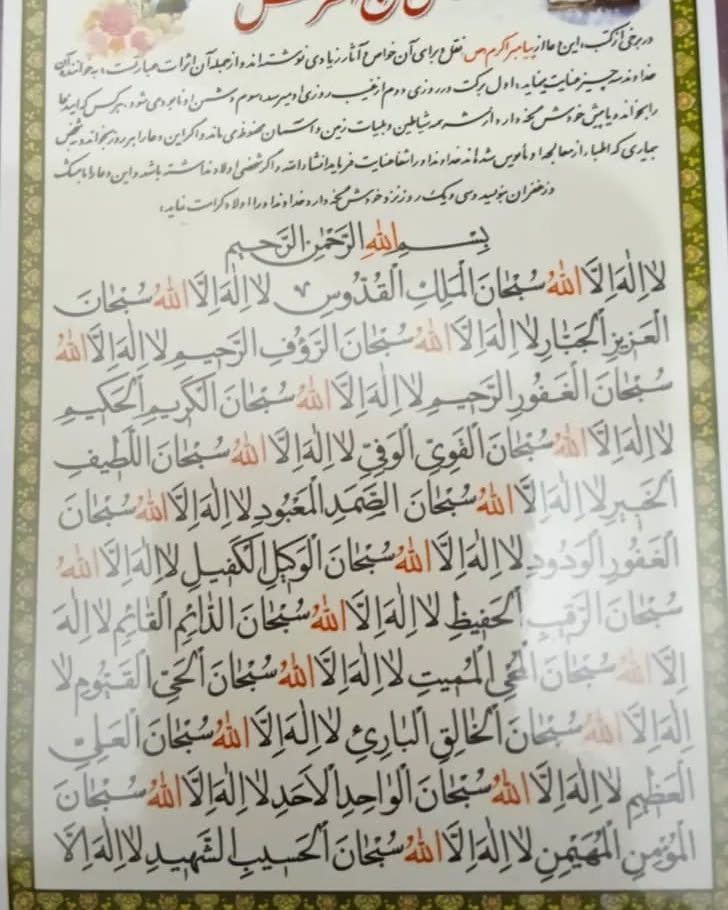 گنج العرش
در برخی از کتب، این دعا از پیامبر اکرم ص نقل و برای آن خواص و آثار زیادی نوشته‌اند و از جمله آن اثرات عبارتست: بخواننده آن
خداوند سه چیز عنایت مینماید، اول برکت در روزی و دوم از غیب روزی او میرسد، سوم دشمن او نابود می شود، هر کس که این دعا
را بخواند و یا پیش خودش نگهدارد از شر همه شیاطین و بلیات زمین و آسمان محفوظ می ماند و اگر این دعا را هر روز بخواند و شخص
بیماری که اطباء از معالجه او مأیوس شده‌اند خداوند او را شفا عنایت فرماید انشاءالله و اگر شخصی اولاد نداشته باشد و این دعا را با مشک
و زعفران بنویسد و سی و یک روز نزد خودش نگهدارد خداوند او را اولاد کرامت نماید.
بِسْمِ اللهِ الرَّحْمٰنِ الرَّحیمِ
لا اِلٰهَ اِلَّا اللهُ سُبْحٰانَ الْمَلِكِ الْقُدّوُسِ لا اِلٰهَ اِلَّا اللهُ سُبْحٰانَ
الْعَزیزِ الْجَبّٰارِ لا اِلٰهَ اِلَّا اللهُ سُبْحٰانَ الرَّؤُفِ الرَّحیمِ لا اِلٰهَ اِلَّا اللهُ
سُبْحٰانَ الْغَفوُرِ الرَّحیمِ لا اِلٰهَ اِلَّا اللهُ سُبْحٰانَ الْكَریمِ الْحَكیمِ
لا اِلٰهَ اِلَّا اللهُ سُبْحٰانَ الْقَوِیِّ الْوَفِیِّ لا اِلٰهَ اِلَّا اللهُ سُبْحٰانَ اللَّطیفِ
الْخَبیرِ لا اِلٰهَ اِلَّا اللهُ سُبْحٰانَ الصَّمَدِ الْمَعْبوُدِ لا اِلٰهَ اِلَّا اللهُ سُبْحٰانَ
الْغَفوُرِ الْوَدوُدِ لا اِلٰهَ اِلَّا اللهُ سُبْحٰانَ الْوَكیلِ الْكَفیلِ لا اِلٰهَ اِلَّا اللهُ
سُبْحٰانَ الرَّقیبِ الْحَفیظِ لا اِلٰهَ اِلَّا اللهُ سُبْحٰانَ الدّٰائِمِ الْقٰائِمِ لا اِلٰهَ
اِلَّا اللهُ سُبْحٰانَ الْمُحْیِی الْمُمیتِ لا اِلٰهَ اِلَّا اللهُ سُبْحٰانَ الْحَیِّ الْقَیّوُمِ لا
اِلٰهَ اِلَّا اللهُ سُبْحٰانَ الْخٰالِقِ الْبٰارِئِ لا اِلٰهَ اِلَّا اللهُ سُبْحٰانَ الْعَلِیِّ
الْعَظیمِ لا اِلٰهَ اِلَّا اللهُ سُبْحٰانَ الْوٰاحِدِ الْاَحَدِ لا اِلٰهَ اِلَّا اللهُ سُبْحٰانَ
الْمُؤْمِنِ الْمُهَیْمِنِ لا اِلٰهَ اِلَّا اللهُ سُبْحٰانَ الْحَسیبِ الشَّهیدِ لا اِلٰهَ اِلَّا